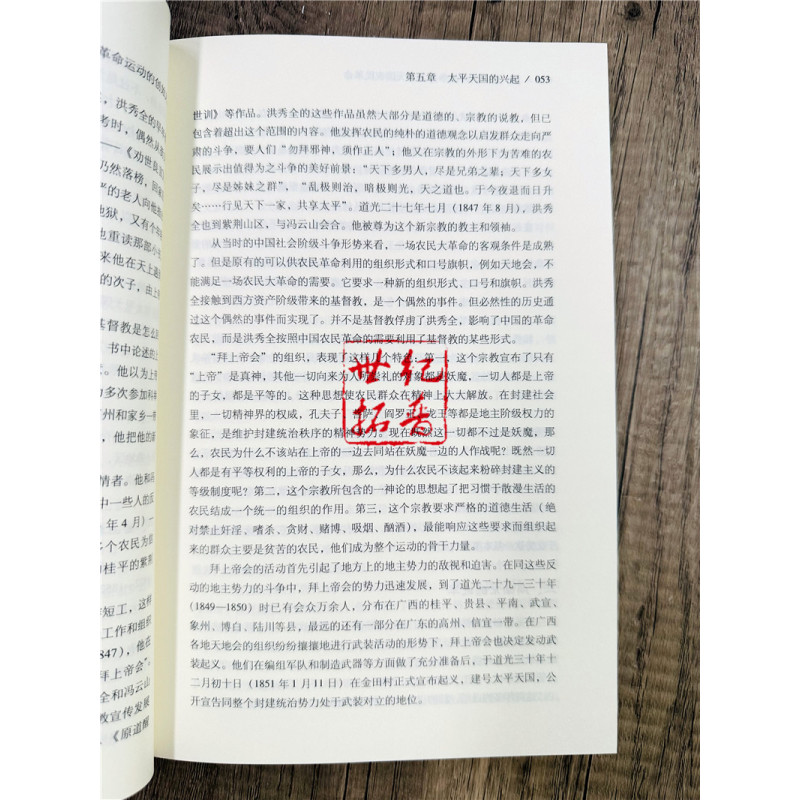 革命运动的
洪秀全的
考时，偶然从
——《劝世良言
仍然落榜，回
严的老人向他
地狱，又有个年
他重读那部小
来他在天上遇
的次子，由上
基督教是怎么
书中论述的上
他以为上帝
力多次参加科
州和家乡一带
，他把他的
情者。他和冯
中一些人的反
年4月）一
多个农民为
和桂平的紫荆
作短工，这样
工作和组织
847），他在
“拜上帝会”。
全和冯云山
教宣传发展
、《原道醒
第五章 太平天国的兴起 / 053
世训》等作品。洪秀全的这些作品虽然大部分是道德的、宗教的说教，但已
包含着超出这个范围的内容。他发挥农民的纯朴的道德观念以启发群众走向严
肃的斗争，要人们“勿拜邪神，须作正人”；他又在宗教的外形下为苦难的农
民展示出值得为之斗争的美好前景；“天下多男人，尽是兄弟之辈；天下多女
子，尽是姊妹之群”，“乱极则治，暗极则光，天之道也。于今夜退而日升
矣……行见天下一家，共享太平”。道光二十七年七月（1847 年 8 月），洪秀
全也到紫荆山区，与冯云山会合。他被尊为这个新宗教的教主和领袖。
从当时的中国社会阶级斗争形势来看，一场农民大革命的客观条件是成熟
了。但是原有的可以供农民革命利用的组织形式和口号旗帜，例如天地会，不
能满足一场农民大革命的需要。它要求一种新的组织形式、口号和旗帜。洪秀
全接触到西方资产阶级带来的基督教，是一个偶然的事件。但必然性的历史通
过这个偶然的事件而实现了。并不是基督教俘虏了洪秀全，影响了中国的革命
农民，而是洪秀全按照中国农民革命的需要利用了基督教的某些形式。
“拜上帝会”的组织，表现了这样几个特点：第一，这个宗教宣布了只有
“上帝”是真神，其他一切向来为人所崇礼的对象都是妖魔，一切人都是上帝
的子女，都是平等的。这种思想使农民群众在精神上大大解放。在封建社会
里，一切精神界的权威，孔夫子、菩萨、阎罗王、龙王等都是地主阶级权力的
象征，是维护封建统治秩序的精神势力。现在既然这一切都不过是妖魔，那
么，农民为什么不该站在上帝的一边去同站在妖魔一边的人作战呢？既然一切
人都是有平等权利的上帝的子女，那么，为什么农民不该起来粉碎封建主义的
等级制度呢？第二，这个宗教所包含的一神论的思想起了把习惯于散漫生活的
农民结成一个统一的组织的作用。第三，这个宗教要求严格的道德生活（绝
对禁止奸淫、嗜杀、贪财、赌博、吸烟、酗酒），最能响应这些要求而组织起
来的群众主要是贫苦的农民，他们成为整个运动的骨干力量。
拜上帝会的活动首先引起了地方上的地主势力的敌视和迫害。在同这些反
动的地主势力的斗争中，拜上帝会的势力迅速发展，到了道光二十九—三十年
（1849—1850）时已有会众万余人，分布在广西的桂平、贵县、平南、武宣、
象州、博白、陆川等县，最远的还有一部分在广东的高州、信宜一带。在广西
各地天地会的组织纷纷攘攘地进行武装活动的形势下，拜上帝会也决定发动武
装起义。他们在编组军队和制造武器等方面做了充分准备后，于道光三十年十
二月初十日（1851 年 1 月 11 日）在金田村正式宣布起义，建号太平天国，公
开宣告同整个封建统治势力处于武装对立的地位。
世纪
拓晋